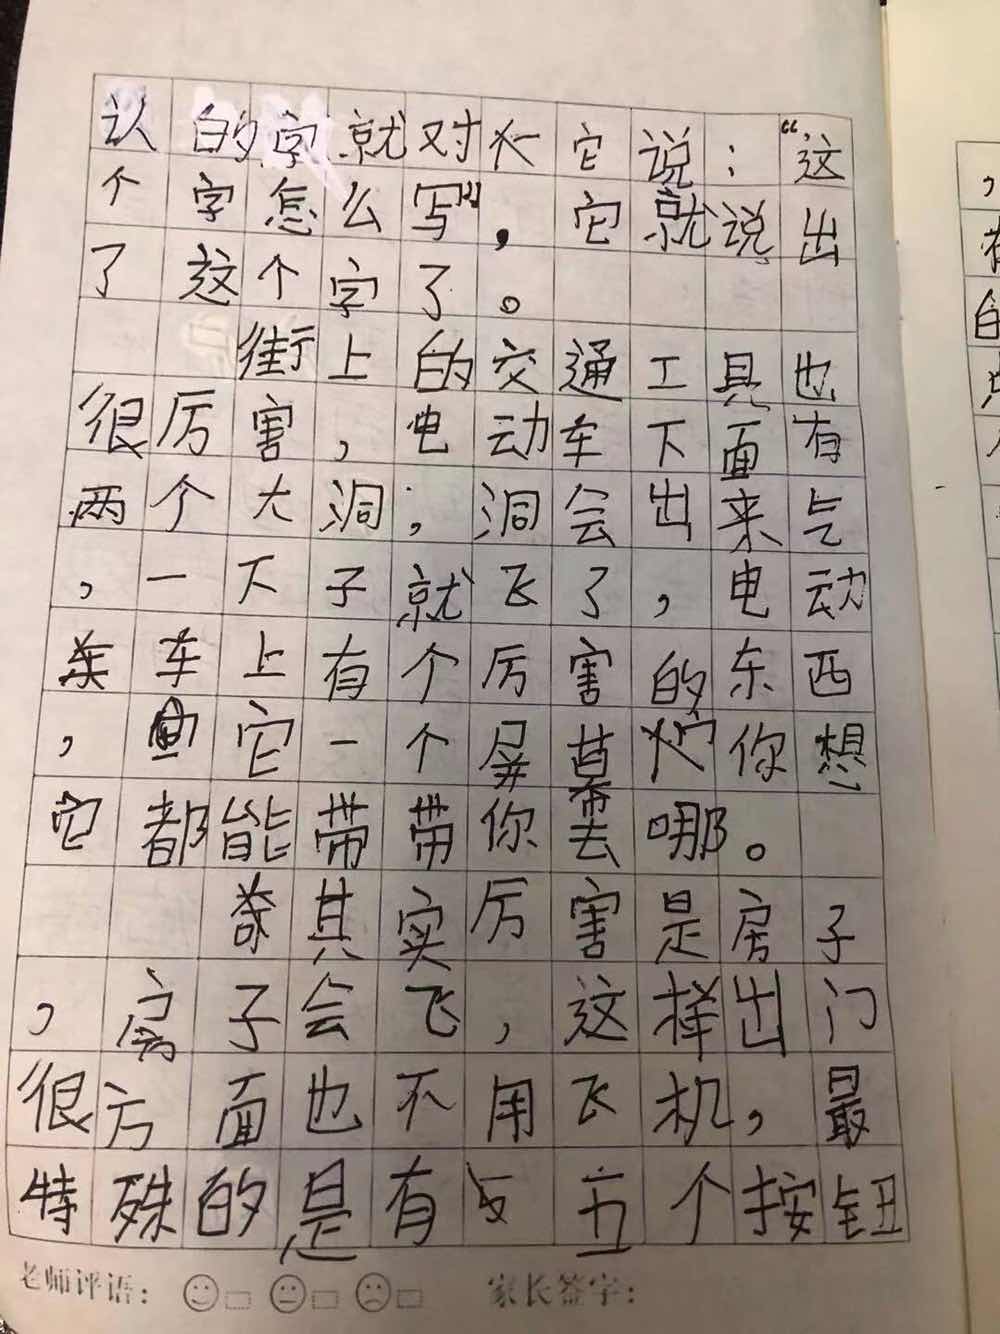 认的字就对它说：“这
个字怎么写”，它就说出
了这个字了。
街上的交通工具也
很厉害，电动车下面有
两个大洞；洞会出来气
，一下子就飞了，电动
车上有个厉害的东西
，它一个屏幕你想
它都能带带你去哪。
其实厉害是房子
，房子会飞，这样出门
很方面也不用飞机，最
特殊的是有五个按钮
老师评语： 家长签字：